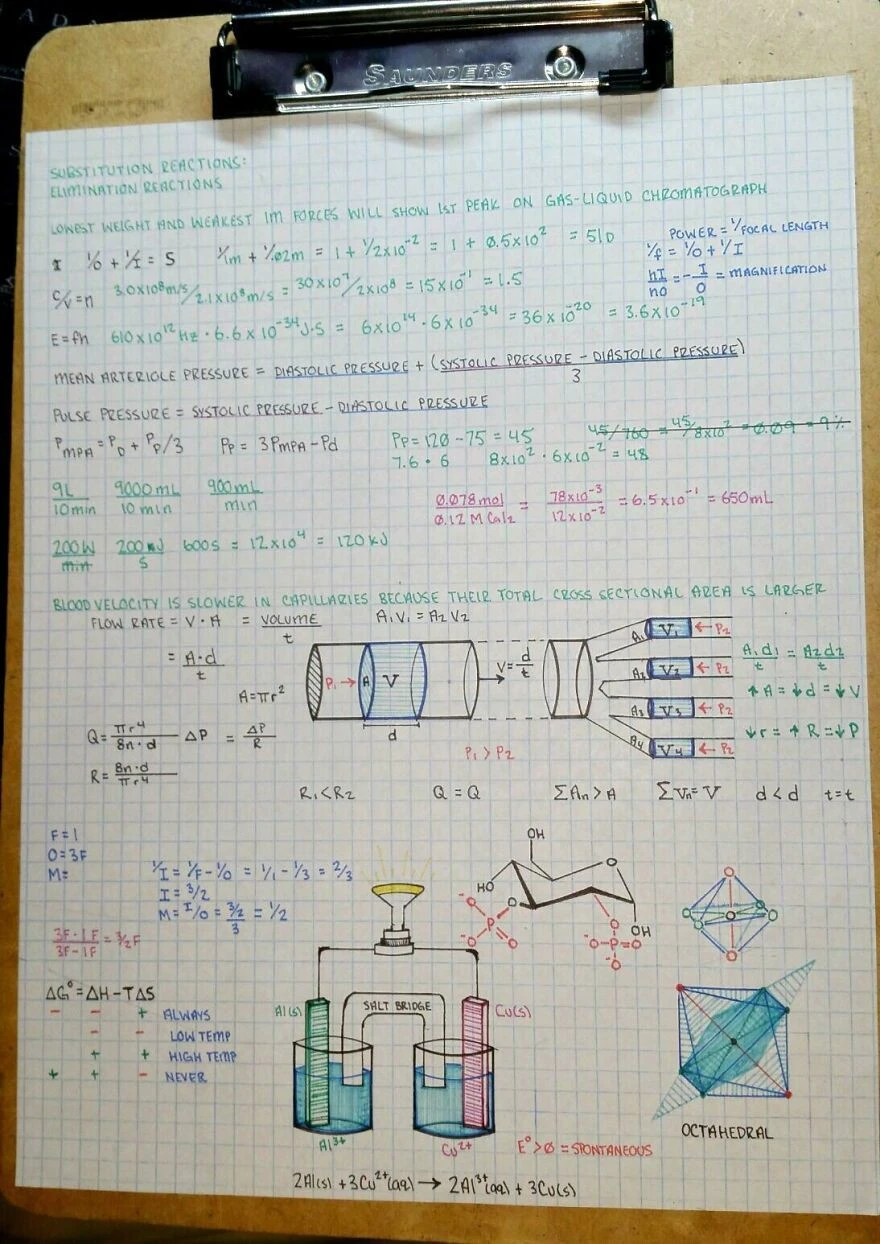 SAUNDERS
SUBSTITUTION REACTIONS:
ELIMINATION REACTIONS
LOWEST WEIGHT AND WEAKEST IM FORCES WILL SHOW 1ST PEAK ON GAS-LIQUID CHROMATOGRAPH
I 1/O + 1/I = S 1/1m + 1/.02m = 1 + 1/2x10⁻² = 1 + 0.5x10² = 51D
POWER = 1/FOCAL LENGTH
1/f = 1/O + 1/I
hI/hO = -I/O = MAGNIFICATION
C/V = n 3.0x10⁸m/s/2.1x10⁸m/s = 30x10⁷/2x10⁸ = 15x10⁻¹ = 1.5
E = fh 610x10¹²Hz · 6.6x10⁻³⁴J·S = 6x10¹⁴ · 6x10⁻³⁴ = 36x10⁻²⁰ = 3.6x10⁻¹⁹
MEAN ARTERIOLE PRESSURE = DIASTOLIC PRESSURE + (SYSTOLIC PRESSURE - DIASTOLIC PRESSURE)/3
PULSE PRESSURE = SYSTOLIC PRESSURE - DIASTOLIC PRESSURE
PMPA = PD + PP/3 PP = 3PMPA - Pd PP = 120 - 75 = 45 45/760 = 45/8x10² = 0.09 = 9%
7.6 · 6 8x10² · 6x10⁻² = 48
9L/10min 9000mL/10min 900mL/min
0.078mol/0.12 M CaI2 = 78x10⁻³/12x10⁻² = 6.5x10⁻¹ = 650mL
200W/min 200J/S 600s = 12x10⁴ = 120kJ
BLOOD VELOCITY IS SLOWER IN CAPILLARIES BECAUSE THEIR TOTAL CROSS SECTIONAL AREA IS LARGER
FLOW RATE = V · A = VOLUME/t A₁V₁ = A₂V₂
= A·d/t
A = πr²
P₁ → A V
d
V = d/t
A₁ V₁ ← P₂
A₂ V₂ ← P₂
A₃ V₃ ← P₂
A₄ V₄ ← P₂
A₁d₁/t = A₂d₂/t
↑A = ↓d = ↓V
↓r = ↑R = ↓P
Q = πr⁴/8n·d ΔP = ΔP/R
R = 8n·d/πr⁴
P₁ > P₂
R₁ < R₂ Q = Q ΣAn > A ΣVn = V d < d t = t
F = 1
O = 3F
M =
1/I = 1/F - 1/O = 1/1 - 1/3 = 2/3
I = 3/2
M = I/O = 3/2/3 = 1/2
3F·1F/3F-1F = 3/2F
OH
O
HO
O
OH
O
P
O
O
O
O
P
O
O
O
ΔG° = ΔH - TΔS
- - + ALWAYS
- - LOW TEMP
+ + HIGH TEMP
+ + - NEVER
Al(s) SALT BRIDGE Cu(s)
Al³⁺ Cu²⁺
E° > 0 = SPONTANEOUS
OCTAHEDRAL
2Al(s) + 3Cu²⁺(aq) → 2Al³⁺(aq) + 3Cu(s)